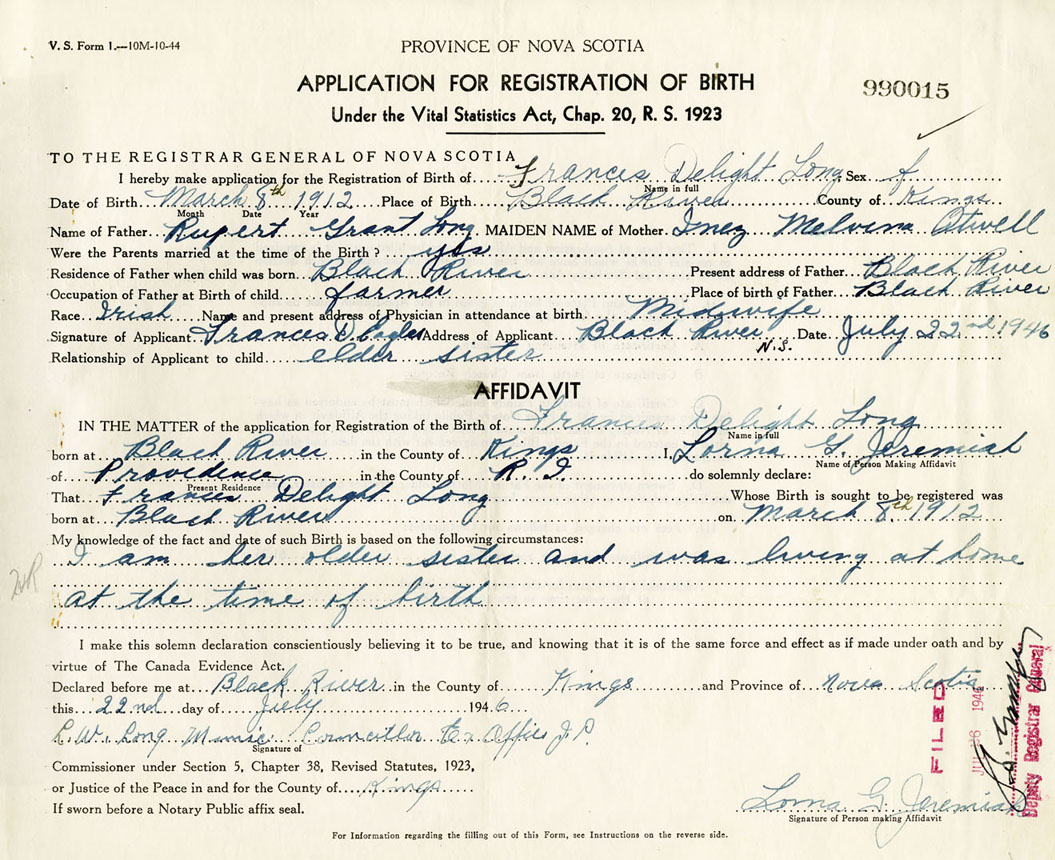 V. S. Form 1.—10M-10-44
PROVINCE OF NOVA SCOTIA
APPLICATION FOR REGISTRATION OF BIRTH
990015
Under the Vital Statistics Act, Chap. 20, R. S. 1923
TO THE REGISTRAR GENERAL OF NOVA SCOTIA
I hereby make application for the Registration of Birth of Frances Delight Long Sex f
Name in full
Date of Birth March 8th 1912 Place of Birth Black River County of Kings
Month Date Year
Name of Father Rupert Grant Long MAIDEN NAME of Mother Inez Melvina Atwell
Were the Parents married at the time of the Birth? yes
Residence of Father when child was born Black River Present address of Father Black River
Occupation of Father at Birth of child farmer Place of birth of Father Black River
Race Irish Name and present address of Physician in attendance at birth Midwife
Signature of Applicant Frances D. Eagles Address of Applicant Black River N.S. Date July 22nd 1946
Relationship of Applicant to child elder sister
AFFIDAVIT
IN THE MATTER of the application for Registration of the Birth of Frances Delight Long
Name in full
born at Black River in the County of Kings I, Lorna G. Jeremiah
Name of Person Making Affidavit
of Providence in the County of R. I. do solemnly declare:
Present Residence
That Frances Delight Long Whose Birth is sought to be registered was
born at Black River on March 8th 1912
My knowledge of the fact and date of such Birth is based on the following circumstances:
I am her older sister and was living at home
at the time of birth
I make this solemn declaration conscientiously believing it to be true, and knowing that it is of the same force and effect as if made under oath and by
virtue of The Canada Evidence Act.
Declared before me at Black River in the County of Kings and Province of Nova Scotia
this 22nd day of July 1946
L. W. Long Munic Councillor Ex Officio J. P.
Signature of
Commissioner under Section 5, Chapter 38, Revised Statutes, 1923,
or Justice of the Peace in and for the County of Kings
If sworn before a Notary Public affix seal.
Lorna G. Jeremiah
Signature of Person making Affidavit
For Information regarding the filling out of this Form, see Instructions on the reverse side.
FILED
Deputy Registrar General